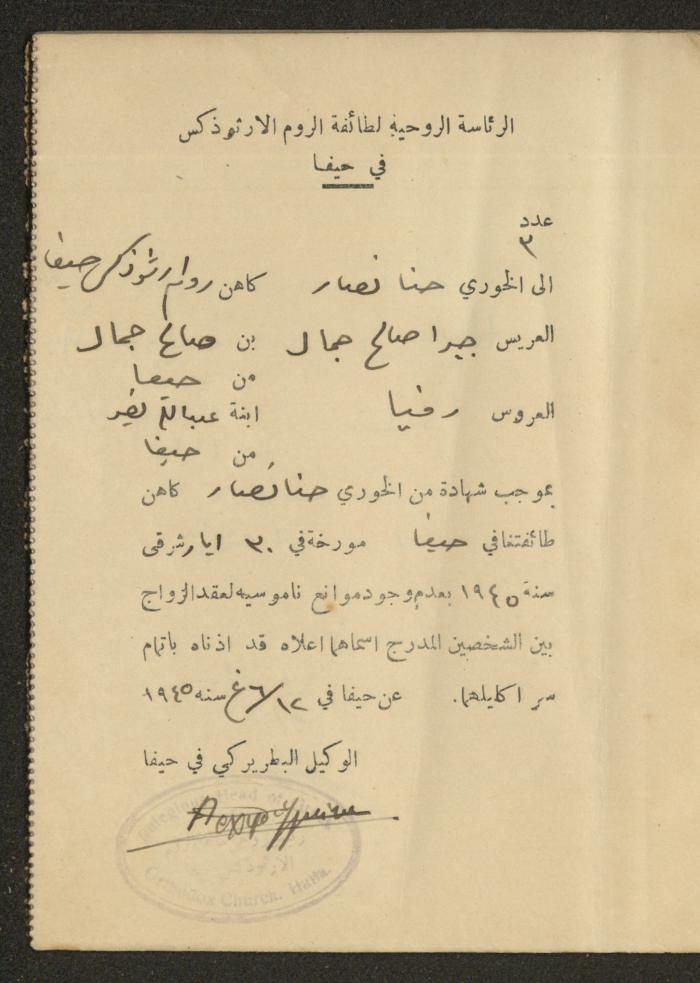 الرئاسة الروحية لطائفة الروم الارثوذكس
في حيفا
عدد
٣
الى الخوري حنا نصار كاهن روم ارثوذكس حيفا
العريس جبرا صالح جمال بن صالح جمال
من حيفا
العروس رفيا ابنة عبدالله
من حيفا
بموجب شهادة من الخوري حنا نصار كاهن
طائفتنا في حيفا مورخة في ٣٠ ايار شرقي
سنة ١٩٤٥ بعدم وجود موانع ناموسيه لعقد الزواج
بين الشخصين المدرج اسماهما اعلاه قد اذناه باتمام
سر اكليلهما. عن حيفا في ٦/١٢ غ سنه ١٩٤٥
الوكيل البطريركي في حيفا
Religious Head
الارثوذكس
Orthodox Church. Haifa.